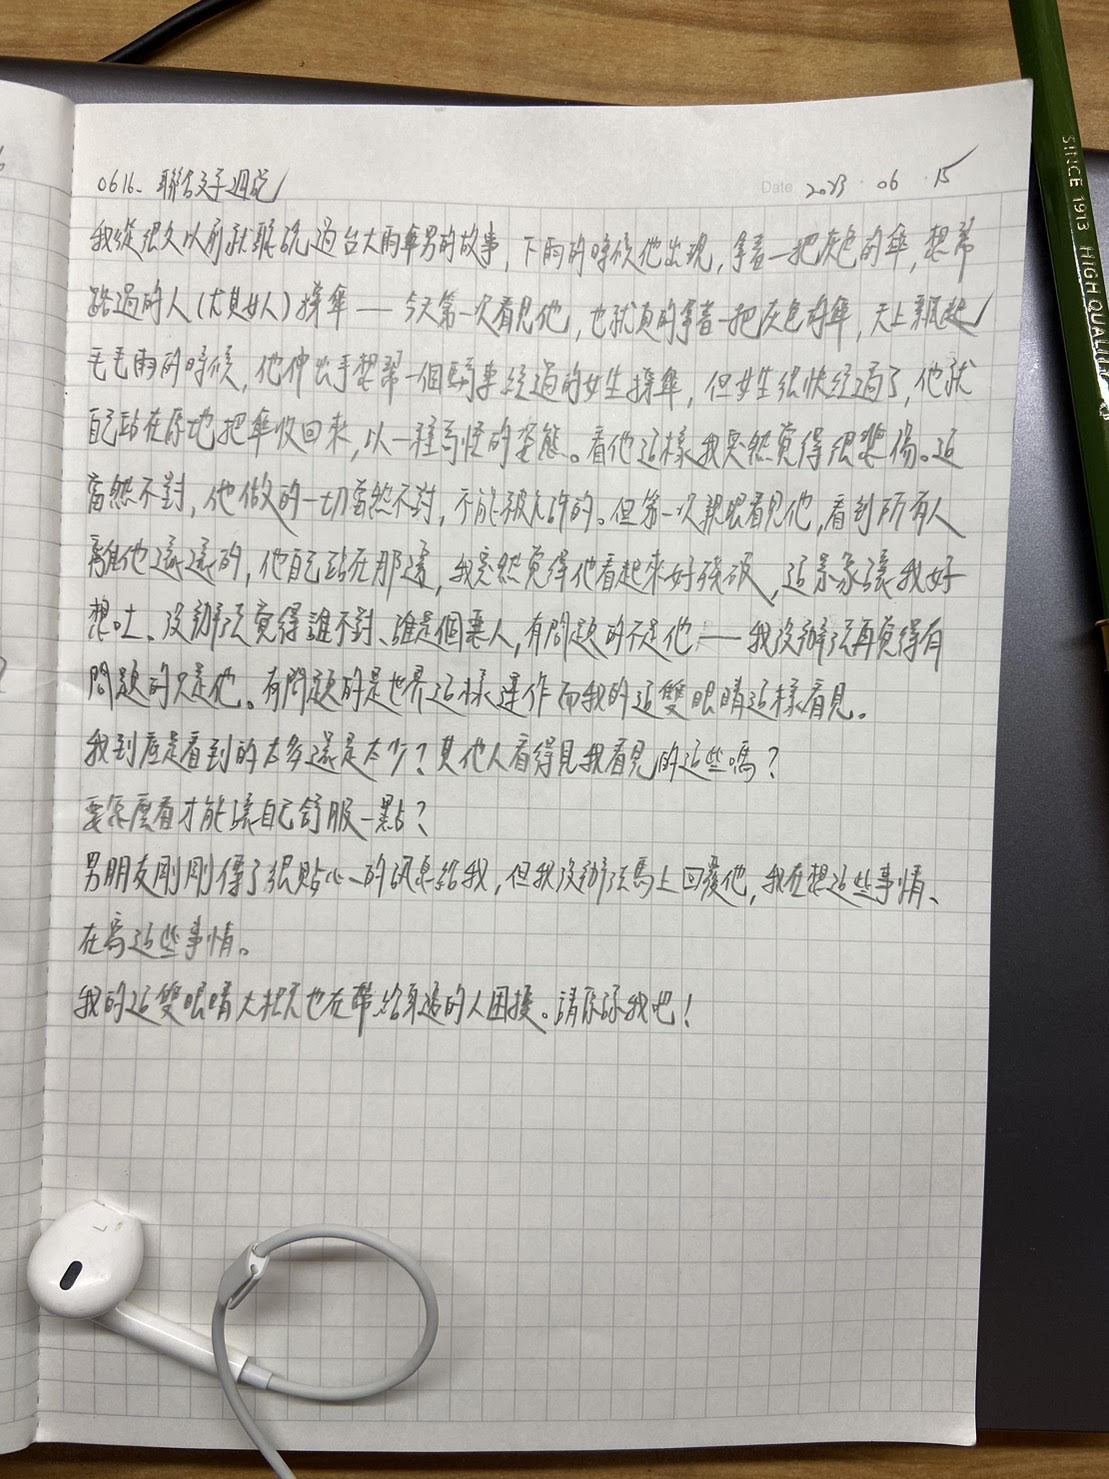 0616. 聯合文學 週記
Date 2023 · 06 · 15
我從很久以前就聽說過台大雨傘男的故事, 下雨的時候他出現, 拿著一把灰色的傘, 想幫
路過的人(尤其女人)撐傘——今天第一次看見他, 也就真的拿著一把灰色的傘, 天上飄起
毛毛雨的時候, 他伸出手想幫一個騎車經過的女生撐傘, 但女生很快經過了, 他就
自己站在原地把傘收回來, 以一種奇怪的姿態。看他這樣我突然覺得很悲傷。這
當然不對, 他做的一切當然不對, 不能被允許的。但第一次親眼看見他, 看到所有人
離他遠遠的, 他自己站在那邊, 我突然覺得他看起來好殘破, 這景象讓我好
想吐、沒辦法覺得誰不對、誰是個惡人, 有問題的不是他——我沒辦法再覺得有
問題的只是他。有問題的是世界這樣運作而我的這雙眼睛這樣看見。
我到底是看到的太多還是太少? 其他人看得見我看見的這些嗎?
要怎麼看才能讓自己舒服一點?
男朋友剛剛傳了很貼心的訊息給我, 但我沒辦法馬上回覆他, 我在想這些事情、
在寫這些事情。
我的這雙眼睛大概也在帶給身邊的人困擾。請原諒我吧!
L
SINCE 1913 HIGH QUALI